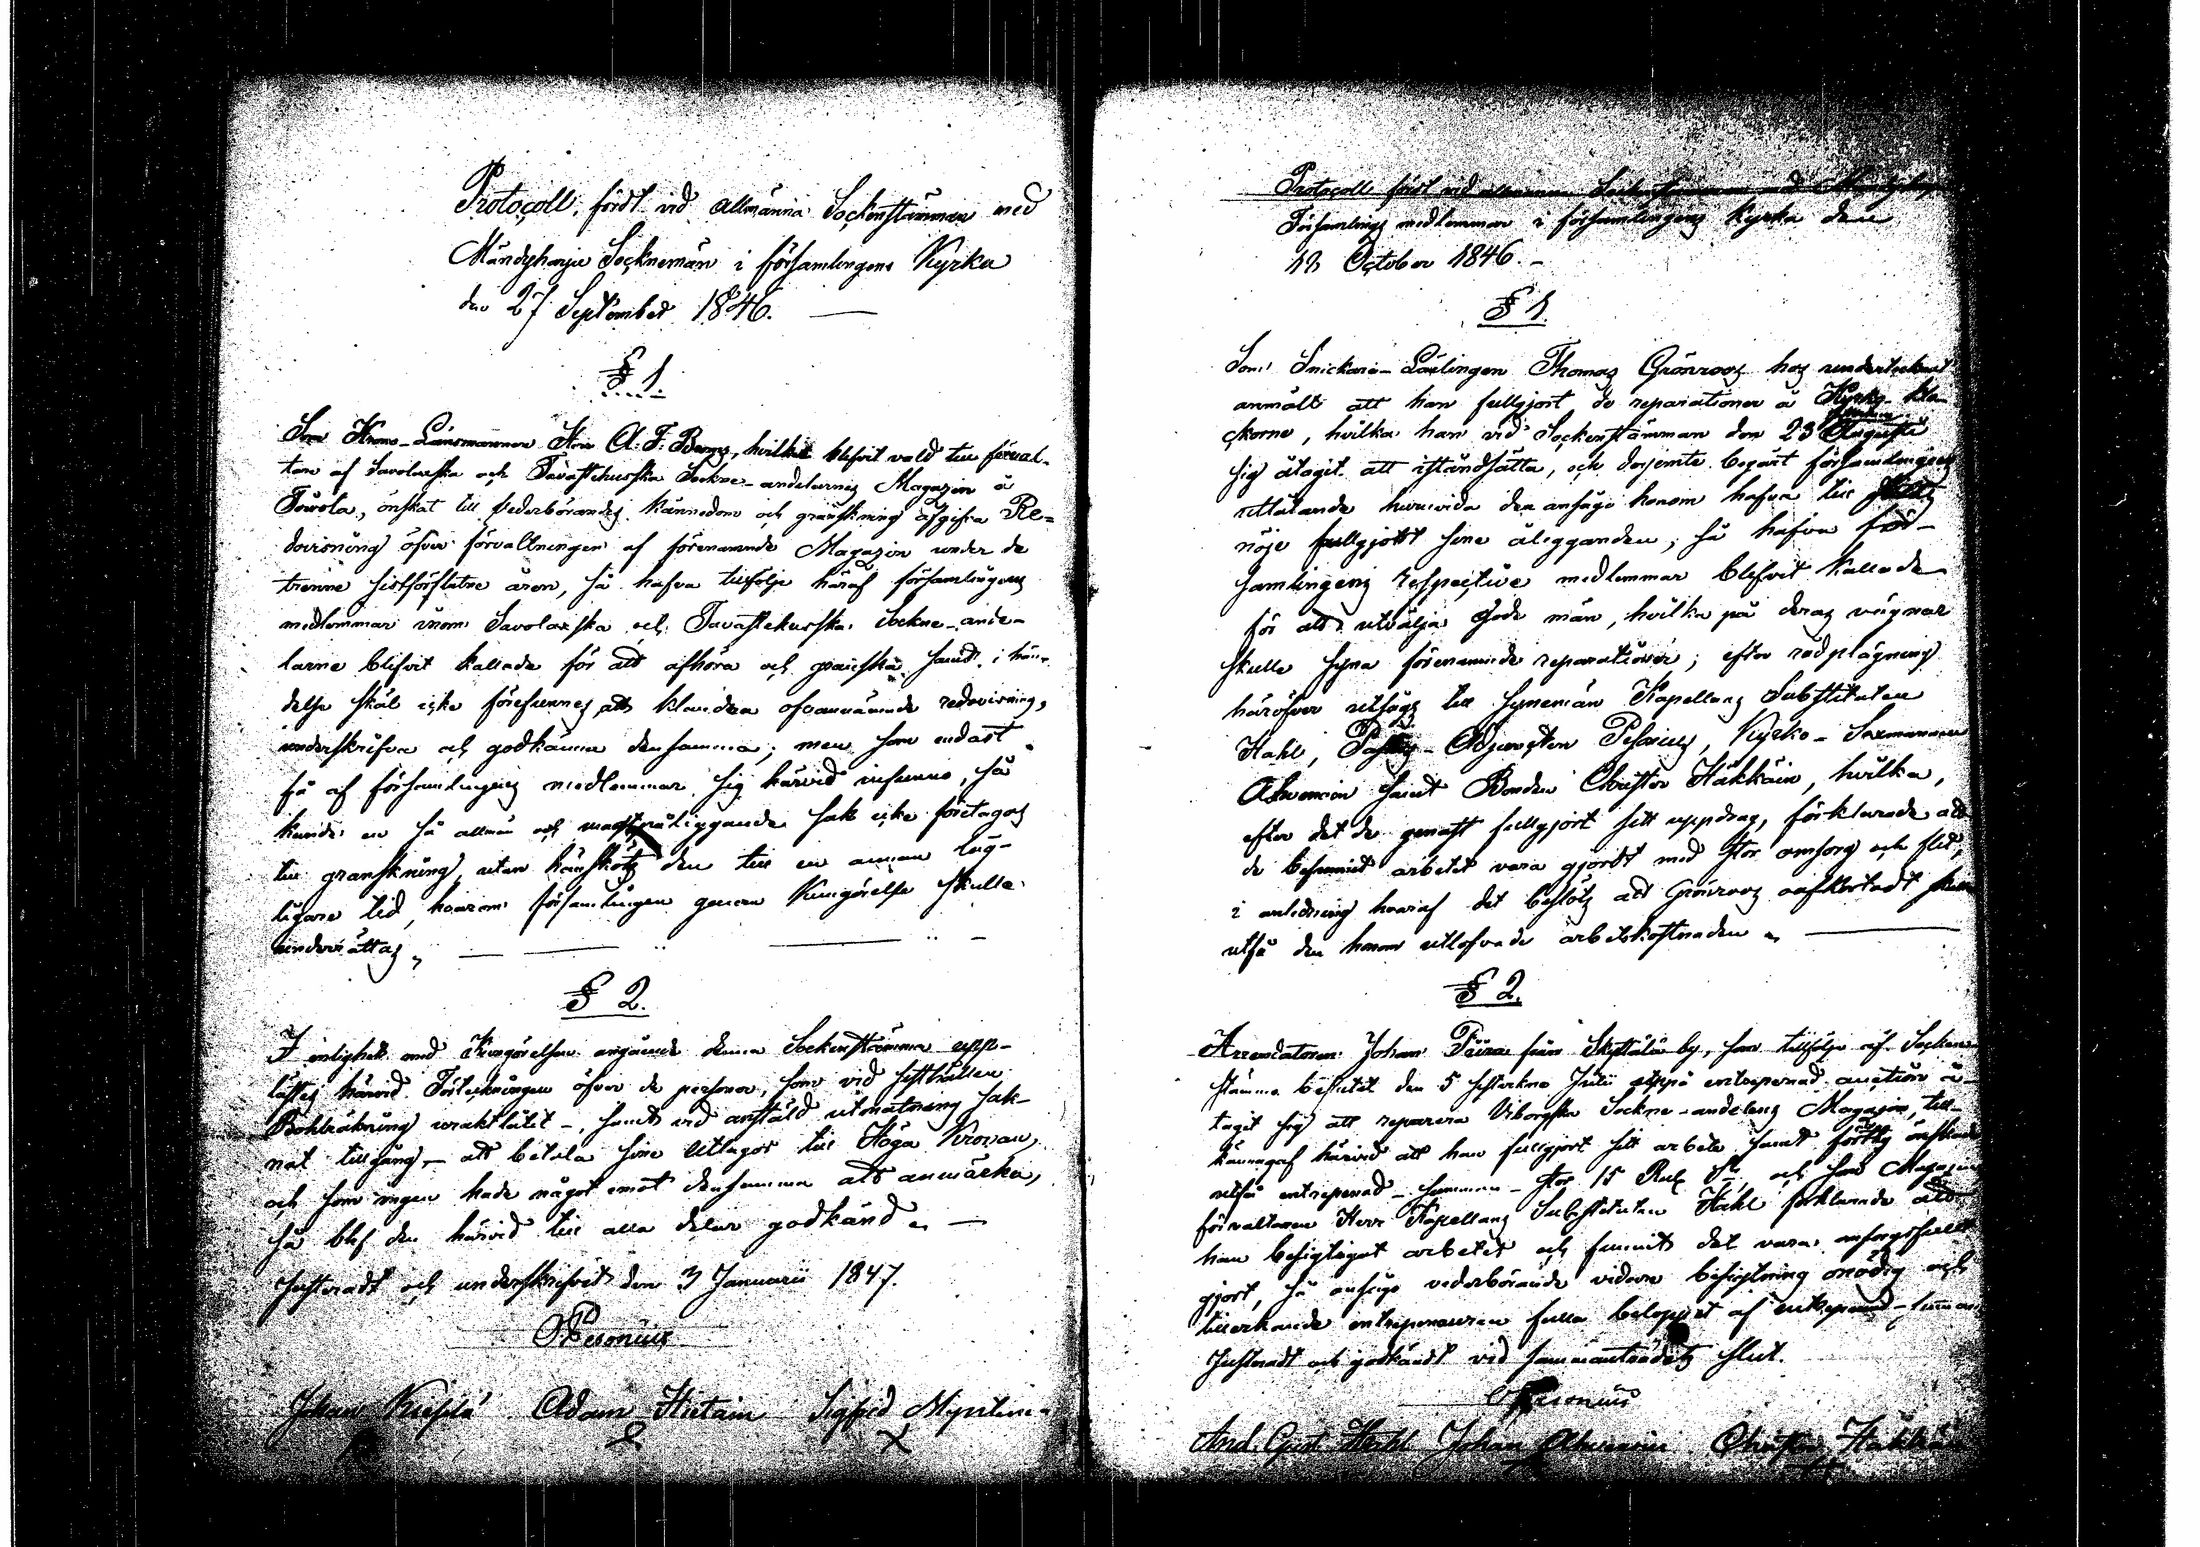 Protocoll, fördt vid allmänna Sockenstämman med
Mändyharju Socknemän i församlingens Kyrka
den 27 September 1846.
§ 1.
Som Krono-Länsmannen Herr A: F: Berng, hvilken blifvit vald till förval-
tare af Savolaxska och Tavastehusska Sockne-andelarnes Magazin å
Toivola, önskat till vederbörandes kännedom och granskning afgifva Re-
dovisning öfver förvaltningen af förenämnde Magazin under de
trenne sistförflutne åren, så hafva tillfölje häraf församlingens
medlemmar inom Savolaxska och Tavastehusska Sockne-ande-
larne blifvit kallade för att afhöra och granska samt, i hän-
delse skäl icke förefunnes att klandra ofvannämnde redovisning,
underskrifva och godkänna densamma; men som endast
få af församlingens medlemmar sig härvid infunno, så
kunde en så allmän och magtpåliggande sak icke företagas
till granskning, utan hänsköts den till en annan läg-
ligare tid, hvarom församlingen genom Kungörelse skulle
underrättas.
§ 2.
I enlighet med Kungörelsen angående denna Sockenstämma upp-
lästes härvid Förteckningen öfver de personer, som vid sisthållen
Bohlräkning uraktlåtit -, samt vid anstäld utmätning sak-
nat tillgång, - att betala sine Utlagor till Höga Kronan,
och som ingen hade något emot densamma att anmärka,
så blef den härvid till alla delar godkänd.
Justeradt och underskrifvet den 3 Januarii 1847.
Pesonius
Johan Adam Hietain Sigfrid
Protocoll fördt vid allmänna Sockenstämman med Mändyharju
Församlings medlemmar i församlingens Kyrka den
October 1846.
§ 1.
Som Snickare-Lärlingen Thomas Grönroos hos undertecknad
anmält att han fullgjort de reparationer å Kyrko-klo-
ckorne, hvilka han vid Sockenstämman den 23 Augusti
sig åtagit att iståndsätta, och derjemte begärt församlingens
utlåtande huruvida den ansåge honom hafva till
nöje fullgjort sine åligganden; så hafva för-
samlingens respective medlemmar blifvit kallade
för att utvälja gode män, hvilka på deras vägnar
skulle syna förenämnde reparationer; efter rådplägning
häröfver utsågs till synemän Kapellans Substituten
Hahl, Pastors-Adjuncten Pesonius, Kyrko-Sexmannen
Ahvenain samt Bonden Christer Häkkäin, hvilka,
efter det de genast fullgjort sitt uppdrag, förklarade att
de befunnit arbetet vara gjordt med stor omsorg och flit;
i anledning hvaraf det beslöts att Grönroos oafkortadt skulle
utfå den honom utlofvade arbetskostnaden.
§ 2.
Arrendatoren Johan från by, som tillfölje af Socken-
stämma beslutet den 5 sistvekne Julii uppå entreprenad auction å-
tagit sig att reparera Viborgska Sockne-andelens Magazin, till-
kännagaf härvid att han fullgjort sitt arbete samt önskade
utfå entreprenad-summan - stor 15 Rub. och som Magazin
förvaltaren Herr Kapellans Substituten Hahl förklarade att
han besigtigat arbetet och funnit det vara omsorgsfullt
gjort, så ansågo vederbörande vidare besigtning onödig och
tillerkände entreprenauren fulla beloppet af entreprenad-summan.
Justeradt och godkändt vid sammanträdets slut.
Pesonius
And. Gust. Hahl Johan Ahvenain Christer Häkkäin